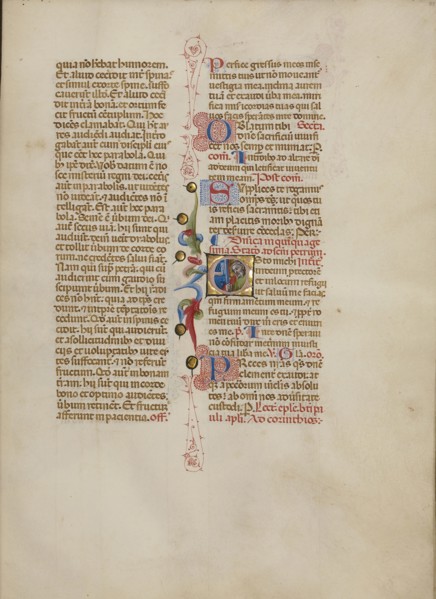 quia nō hēbat humorem.
Et aliud cecidit int̄ spinas
et simul exorte spine suffo
cauerunt illd. Et aliud ceci
dit in t̄rā bonā. et ortum fe
cit fructū cētuplum. Hec
dicēs clamabat. Qui h̄t au
res audiēdi audiat. Intro
gabāt aut̄ eum discipuli ei
que eēt hec parabola. Qui
bꝫ ip̄e dix̄. Uobis datum ē no
sce misteriū regni dei. ceteris
aut̄ in parabolis. ut uidētes
nō uideāt. ⁊ audiētes nō ī
telligāt. Est aut̄ hec para
bola. Semē ē ūbum dei.
aut̄ secus uiā hij sunt qui
audiūt. dein̄ uēit diabolus
et tollit ūbum de corde eo
rum. ne credētes salui fiāt.
Nam qui sup̄ petrā. qui cū
audierint cum gaudio su
scipiunt ūbum. Et hij radi
ces nō hn̄t. qui ad tp̄s cre
dunt. ⁊ in tp̄re tēptatiōis re
cedunt. Qd̄ aut̄ in spinis ce
cidit. hij sūt qui audierūt.
et a sollicitudinibꝫ et diui
cijs et uoluptatibꝫ uite eū
tes suffocant̄. ⁊ nō referūt
fructum. Qd̄ aut̄ in bonam
t̄ram. hij sūt qui in corde
bono et optimo audiētes
ūbum retinēt. Et fructum
afferunt in paciencia. Off.
Perfice gressus meos in se
mitis tuis ut nō moueant̄
uestigia mea. inclina aurem
tuā et exaudi ūba mea. miri
fica mīas tuas qui sal
uos facis sperātes in te domine.
Oblatum tibi Secreta.
dn̄e sacrificiū uiuifi
cet nos semp̄ et muniat. P.
com. Introibo ad altare dei
ad deum qui letificat iuuentu
tem meam. Post com.
Supplices te rogamus
om̄ps d̄s. ut quos tu
is reficis sacramētis. tibi eti
am placitis moribꝫ digna
ter deseruire cōcedas. Per.
Dn̄ica in quinquage
sima. Statio ad scm̄ petrum.
Esto michi Introit̄.
in deum protectorē
et in locum refugij
ut saluū me facias
qm̄ firmamentum meum. et re
fugium meum es tu. et ꝓpt̄ no
men tuū dux m̄ eris et enutri
es me. p̄. In te dn̄e spera
ui nō cōfūdar in et̄nū in iusti
cia tua libera me. V. Gl̄a. Oro.
Preces nr̄as qs̄ dn̄e
clementer exaudi. at
qꝫ a peccatorum uīclis absolu
tos. ab om̄i nos aduersitate
custodi. P. Lectio ep̄le bt̄i pa
uli apl̄i. Ad corinthios.